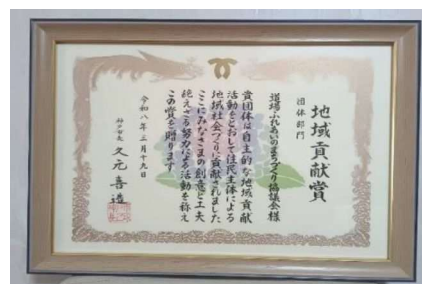 地域貢献賞
団体部門
道場ふれあいのまちづくり協議会様
貴団体は自主的な地域貢献
活動をとおして住民主体による
地域社会づくりに貢献されました
ここにみなさまの創意と工夫
絶えざる努力による活動を称え
この賞を贈ります
令和八年三月十九日
神戸市長 久元喜造